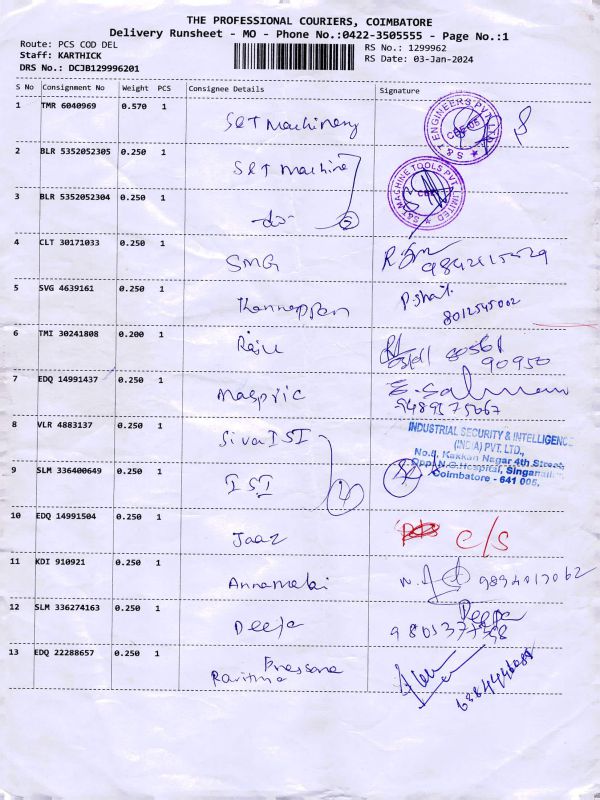 THE PROFESSIONAL COURIERS, COIMBATORE
Delivery Runsheet - MO - Phone No.:0422-3505555 - Page No.:1
Route: PCS COD DEL
RS No.: 1299962
Staff: KARTHICK
RS Date: 03-Jan-2024
DRS No.: DCJB129996201
S No Consignment No Weight PCS Consignee Details Signature
1 TMR 6040969 0.570 1 S&T Machinery
S & T ENGINEERS PVT. LTD.
2 BLR 5352052305 0.250 1 S&T Machine
S&T MACHINE TOOLS PVT. LIMITED
3 BLR 5352052304 0.250 1 -do-
4 CLT 30171033 0.250 1 SMG
5 SVG 4639161 0.250 1 Kannappan
8012545002
6 TMI 30241808 0.200 1 Raju
90950
7 EDQ 14991437 0.250 1 Maspric
9489575067
8 VLR 4883137 0.250 1 Siva ISI
INDUSTRIAL SECURITY & INTELLIGENCE
(INDIA) PVT. LTD.,
No.9, Kakkan Nagar 4th Street,
9 SLM 336400649 0.250 1 ISI
Opp. N.G.Hospital,
Coimbatore - 641 005.
10 EDQ 14991504 0.250 1 Jaaz C/S
11 KDI 910921 0.250 1 Annamalai
12 SLM 336274163 0.250 1 Deepa
Deepa
13 EDQ 22288657 0.250 1